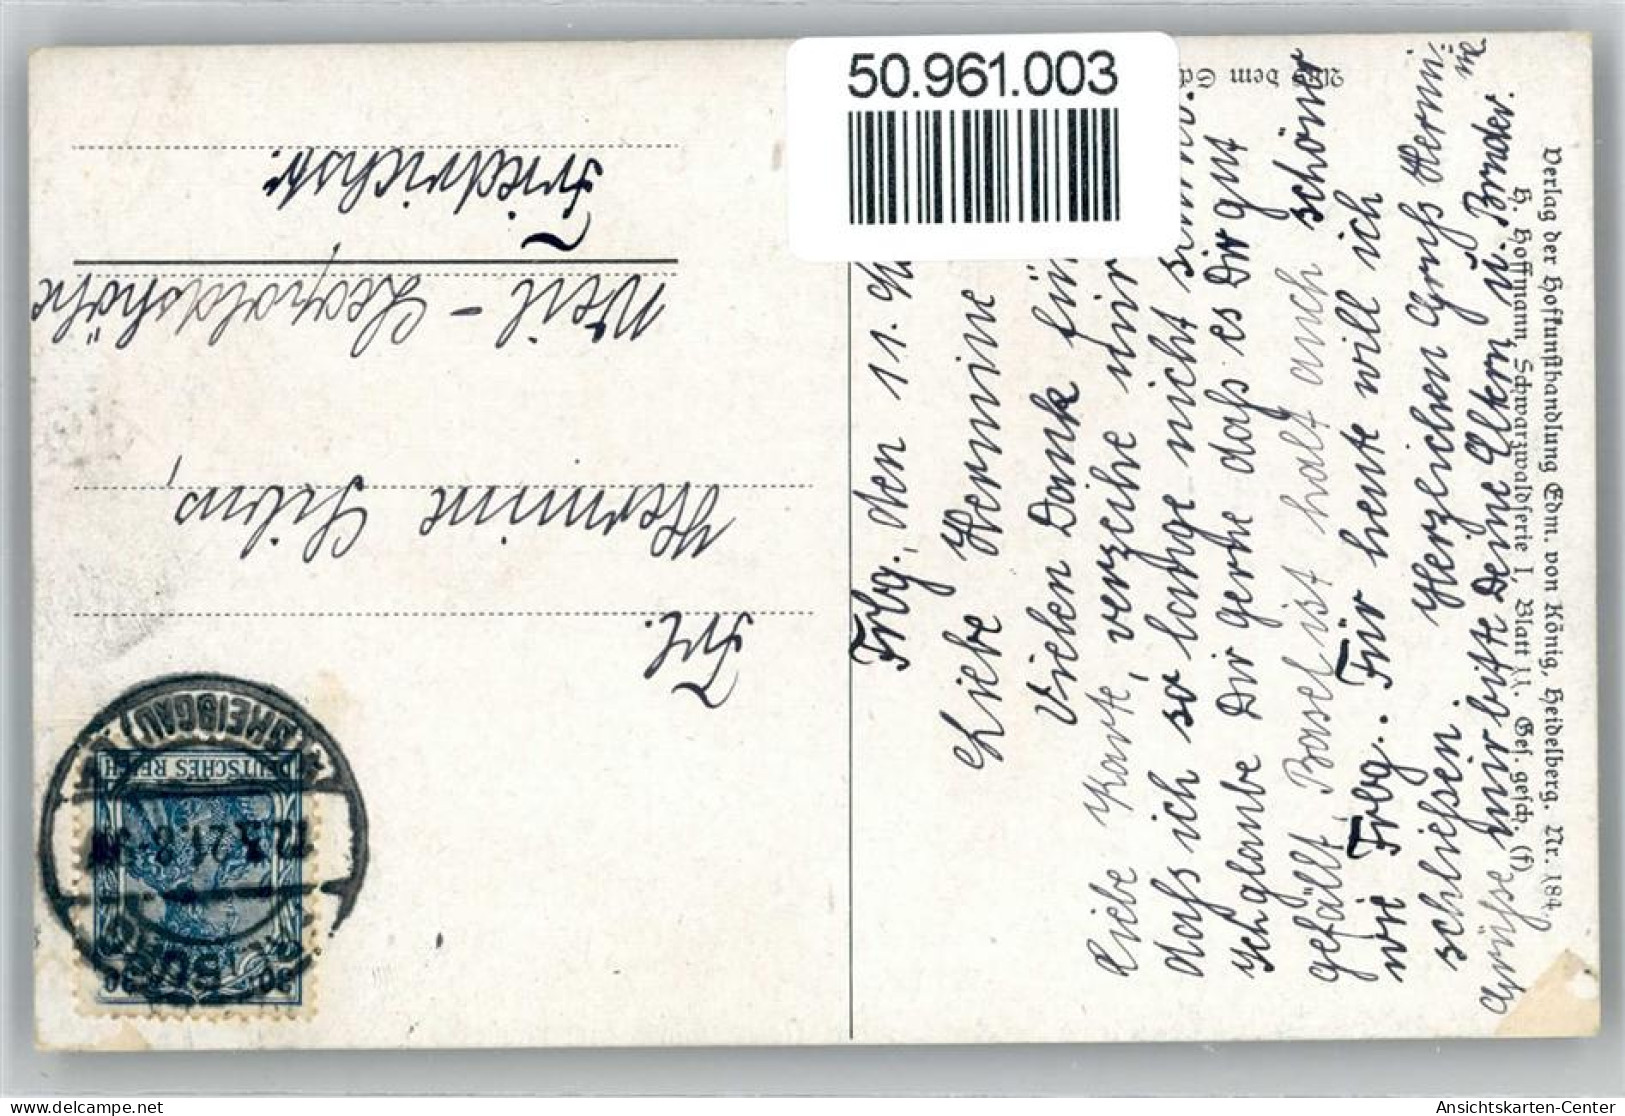 50.961.003
Aus dem
Verlag der Hofkunsthandlung Edm. von König, Heidelberg. Nr. 184.
H. Hoffmann, Schwarzwaldserie I, Blatt 11. Ges. gesch. (f)
Frbg. den 11.
Liebe Hermine
Vielen Dank für
Liebe Karte, verzeihe mir
dass ich so lange nicht
Ich glaube Dir gerne dass es Dir gut
gefällt, Basel ist halt auch schöner
wie Frbg.. Für heute will ich
schliessen. Herzlichen Gruss Hermi-
ne
Grüsse mir bitte Deine Eltern u. Bruder.
Frl.
Hermine
Weil - Leopoldshöhe
Friedrichstr.
DEUTSCHES REICH
(BREISGAU)
12.3.21.8-
30
30
Ansichtskarten-Center
delcampe.net